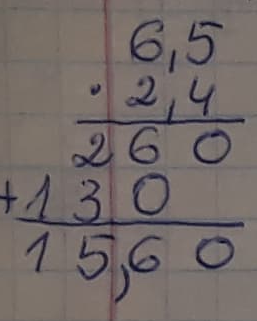 6,5
· 2,4
260
+130
15,60